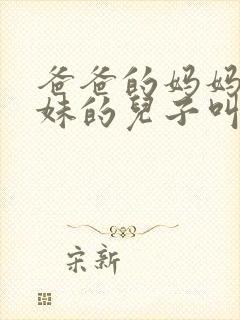 爸爸的妈妈
妹的兒子叫
宋新